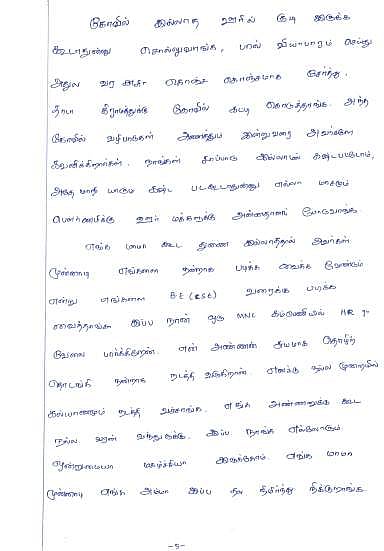 கோவில் இல்லாத ஊரில் குடி இருக்க
கூடாதுன்னு சொல்லுவாங்க, பால் வியாபாரம் செய்து
அதுல வர காசா கொஞ்ச கொஞ்சமாக சேர்த்து,
கிராமத்துக்கு கோவில் கட்டி கொடுத்தாங்க. அந்த
கோவில் வழிபாடுகள் அனைத்தும் இன்றுவரை அவர்களே
கவனிக்கிறார்கள். நாங்கள் சாப்பாடு இல்லாம கஷ்டபட்டோம்,
அதே மாறி யாரும் கஷ்ட படகூடாதுன்னு எல்லா மாசமும்
பௌர்ணமிக்கு ஊர் மக்களுக்கு அன்னதானம் போடுவாங்க.
எங்க மாமா கூட துணை இல்லாததால் அவர்கள்
முன்னாடி எங்களை நன்றாக படிக்க வைக்க வேண்டும்
என்று எங்களை B.E (CSE) வரைக்கு படிக்க
வைத்தாங்க இப்ப நான் ஒரு MNC கம்பெனியில் HR
வேலை பார்க்கிறேன். என் அண்ணன் சுயமாக தொழிற்
தொடங்கி நன்றாக நடத்தி வருகிறான். எனக்கு நல்ல முறையில்
கல்யாணமும் நடத்தி வச்சாங்க. எங்க அண்ணனுக்கு கூட
நல்ல வரன் வந்துருக்கு. இப்ப நாங்க எல்லோரும்
ஒன்றுமையா மகிழ்ச்சியா இருக்கோம். எங்க மாமா
முன்னாடி எங்க அம்மா இப்ப நிமிர்ந்து நிக்குறாங்க
-5-